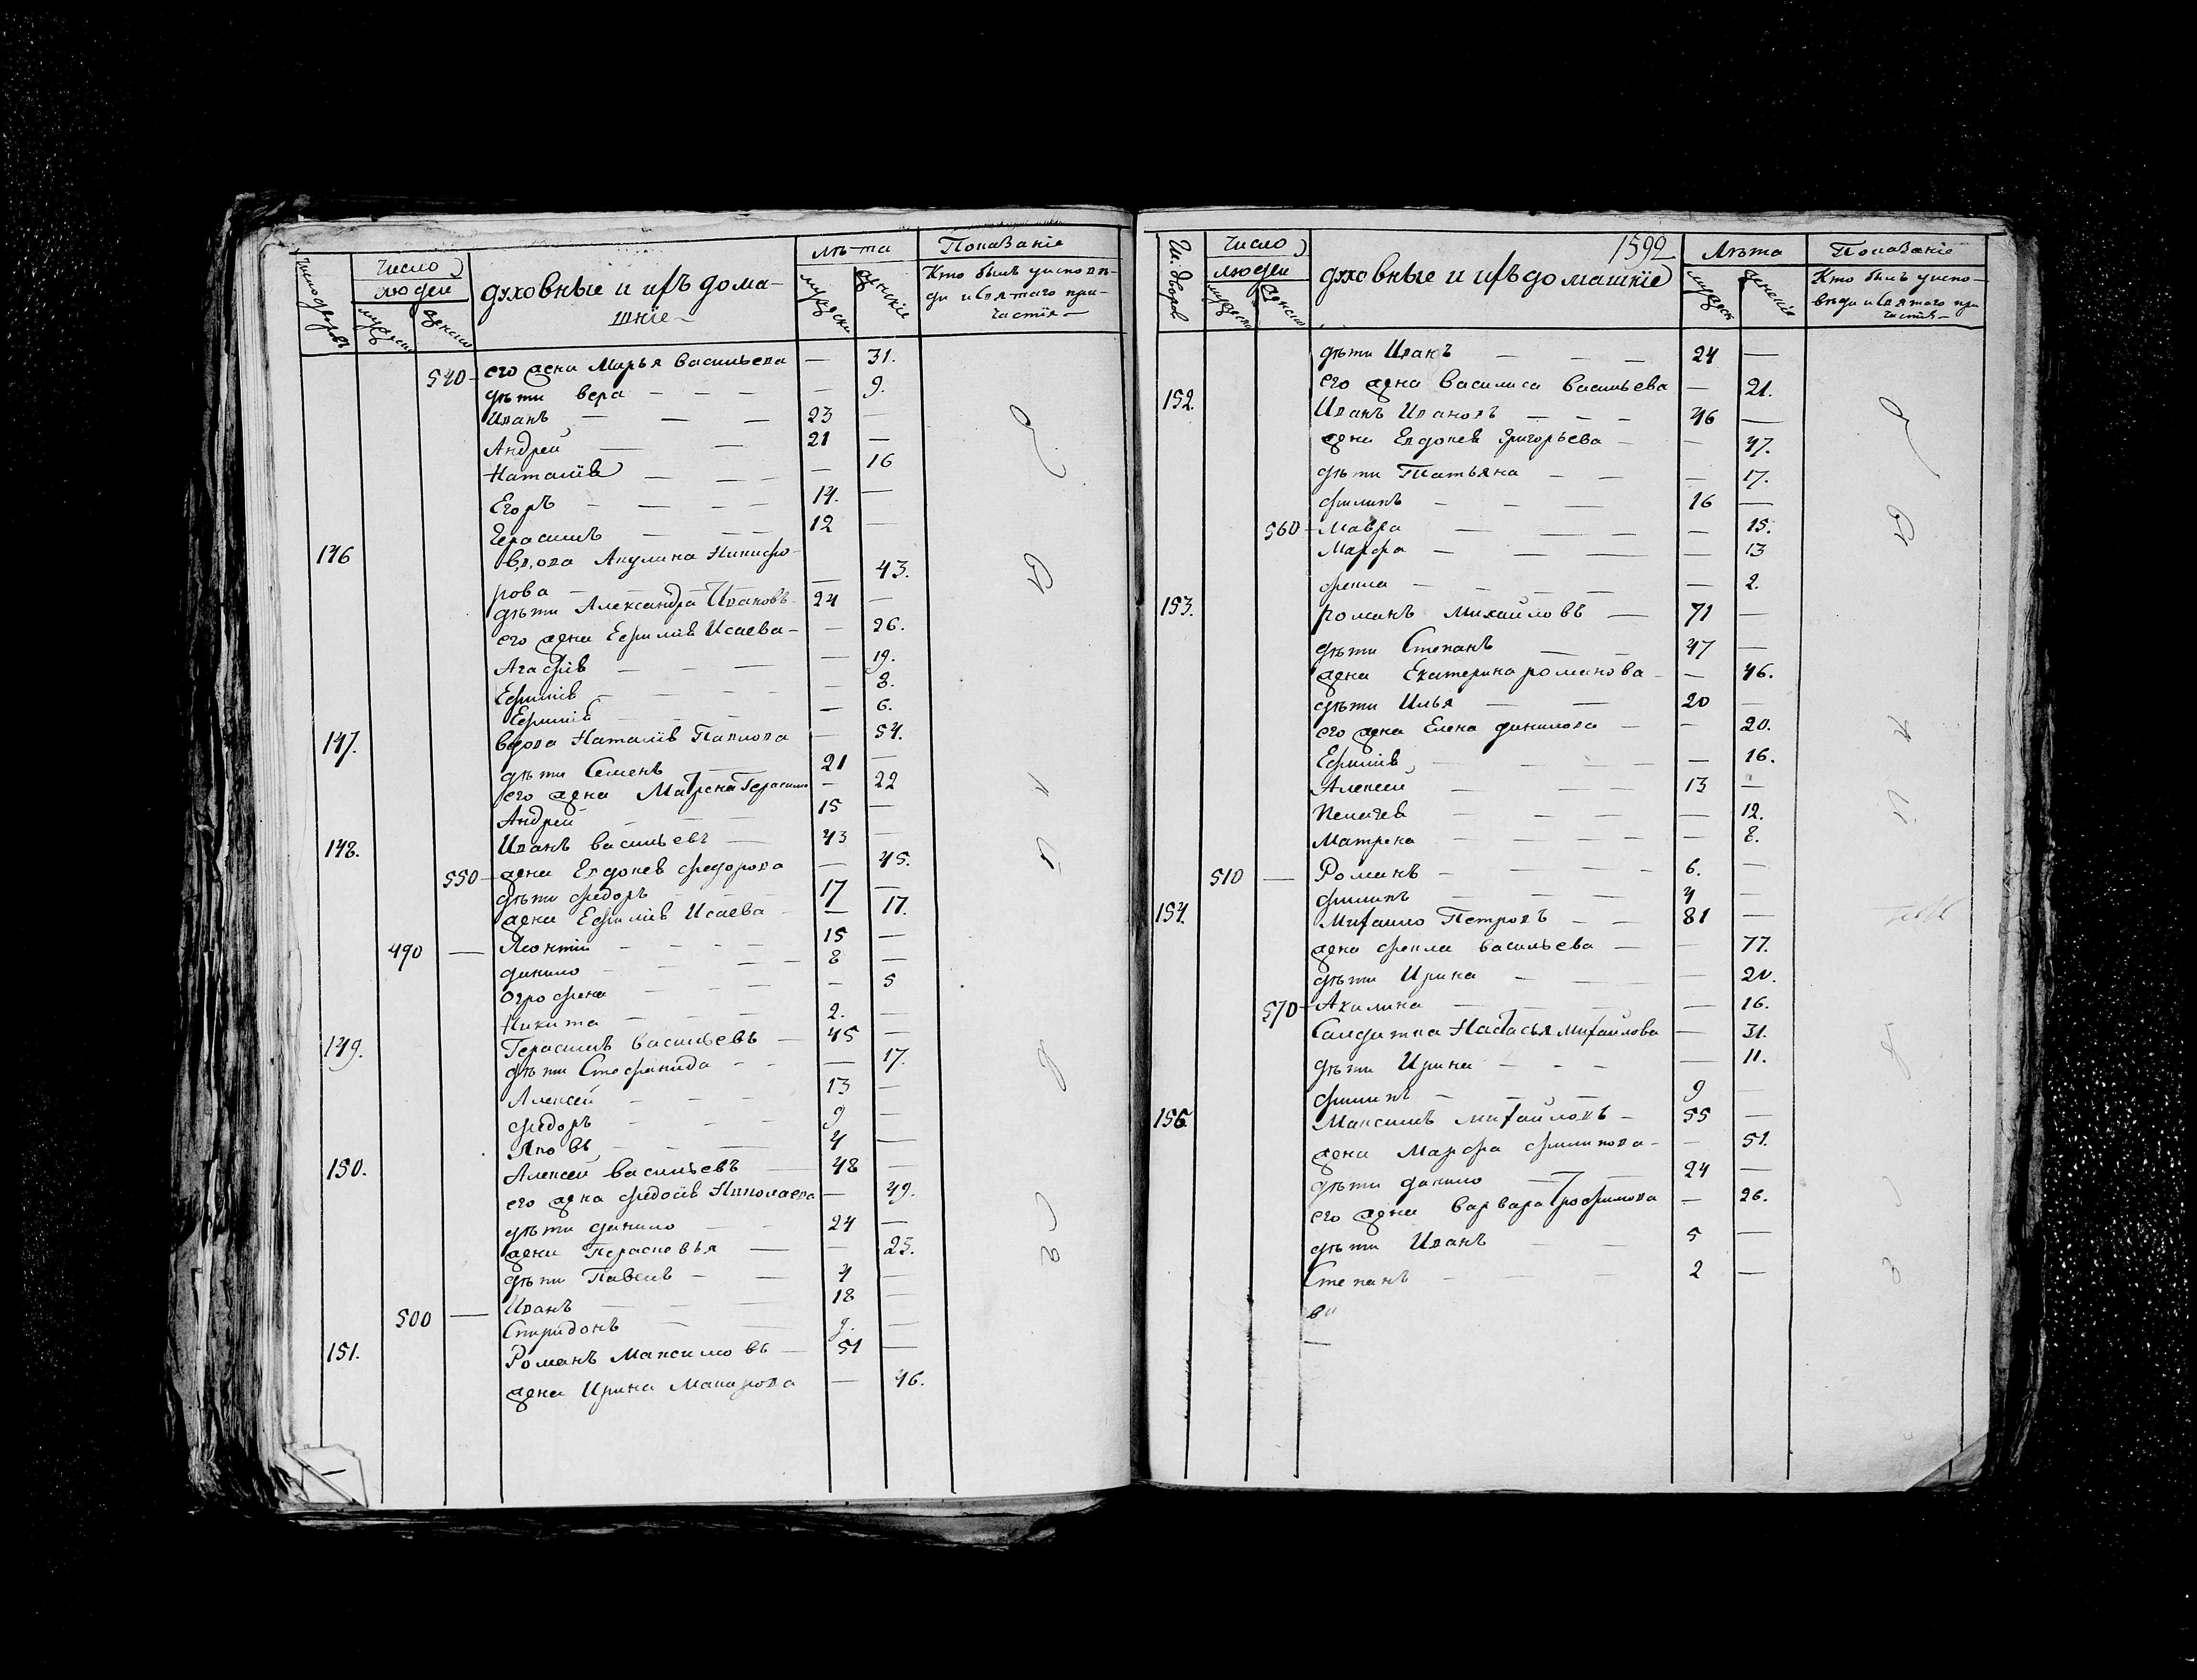 Число дворовъ
Число
людей
мужески
женски
духовные и ихъ дома-
шніе
лѣта
мужески
женскіе
Показаніе
Кто былъ у исповѣ-
ди и святаго при-
частія
540 его жена Марья васильева — 31.
дѣти вера — 9.
Иванъ 23 —
Андрей 21 —
Наталія — 16
Егоръ 14. —
Герасимъ 12 —
146 вдова Акулина Никифо-
рова — 43.
дѣти Александра Ивановъ 24 —
его жена Ефимія Исаева — 26.
Агафія — 19.
Ефимія — 8.
Ефимія — 6.
147. вдова Наталія Павлова — 54.
дѣти Семенъ 21 —
его жена Матрена Герасимо — 22
Андрей 15 —
148. Иванъ васильевъ 43 —
550 жена Евдокея федорова — 45.
дѣти федоръ 17 —
жена Ефимія Исаева — 17.
490 Леонтій 15 —
данило 8 —
Огрофена — 5
Никита 2. —
149. Герасимъ васильевъ 45 —
дѣти Стефанида — 17.
Алексей 13 —
федоръ 9 —
Яковъ 4 —
150. Алексей васильевъ 48 —
его жена федосія Николаева — 49.
дѣти данило 24 —
жена Парасковья — 23.
дѣти Павелъ 4 —
500 Иванъ 18 —
Спиридонъ 9. —
151. Романъ Максимовъ 51 —
жена Ирина Макарова — 46.
1592
Ч. дворов
Число
людей
мужески
женски
духовные и ихъ домашніе
Лѣта
мужески
женскіе
Показаніе
Кто былъ у испо-
вѣди и святаго при
частія
дѣти Иванъ 24 —
его жена василиса васильева — 21.
152. Иванъ Ивановъ 46 —
жена Евдокея григорьева — 47.
дѣти Татьяна — 17.
филипъ 16 —
560 Мавра — 15.
Марфа — 13
фекла — 2.
153. романъ михайловъ 71 —
дѣти Степанъ 47 —
жена Екатерина романова — 46.
дѣти Илья 20 —
его жена Елена данилова — 20.
Ефимія — 16.
Алексей 13 —
Пелагея — 12.
Матрена — 8.
510 Романъ 6. —
филипъ 4 —
154. Михаило Петровъ 81 —
жена фекла васильева — 77.
дѣти Ирина — 20.
570 Акилина — 16.
Салдатка Настасья михаилова — 31.
дѣти Ирина — 11.
филипъ 9 —
156. Максимъ михаиловъ 55 —
жена Марфа филипова — 51.
дѣти данило 24 —
его жена варвара трофимова — 26.
дѣти Иванъ 5 —
Степанъ 2 —